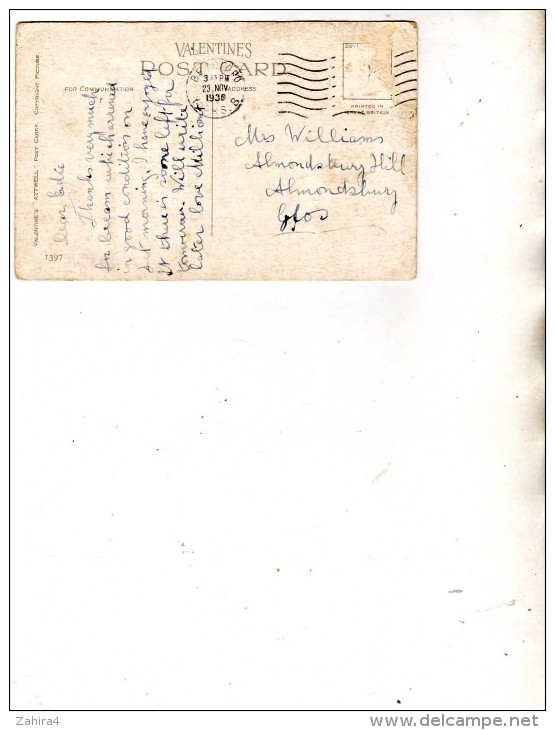 VALENTINES
POST CARD
FOR COMMUNICATION
ADDRESS
3 15 PM
23 NOV
1936
PRINTED IN
GREAT BRITAIN
VALENTINE'S "ATTWELL" POST CARDS. COPYRIGHT PICTURE
1397
Dear Edie
Thanks very much
for cream which arrived
in good condition on
Sat morning. I have enjoyed
it there is some left for
tomorrow. Will write
later love Millicent
Mrs Williams
Almondsbury Hill
Almondsbury
Glos
Zahira4
delcampe.net